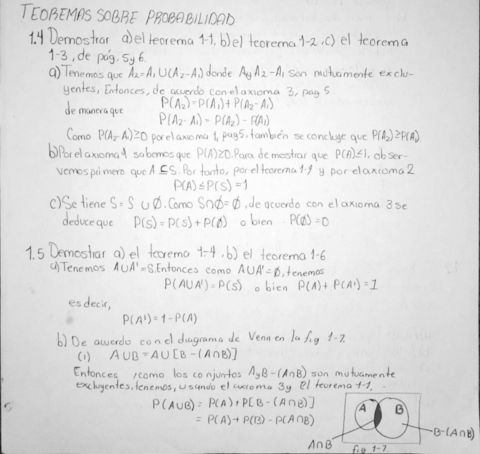 TEOREMAS SOBRE PROBABILIDAD
1.4 Demostrar a) el teorema 1-1, b) el teorema 1-2, c) el teorema
1-3, de pág. 5 y 6.
a) Tenemos que A₂=A₁ U (A₂-A₁) donde A₁ y A₂-A₁ son mutuamente exclu-
yentes, Entonces, de acuerdo con el axioma 3, pag 5
P(A₂)=P(A₁)+P(A₂-A₁)
de manera que
P(A₂-A₁)=P(A₂)-P(A₁)
Como P(A₂-A₁)≥0 por el axioma 1, pag 5, también se concluye que P(A₂)≥P(A₁).
b) Por el axioma 1 sabemos que P(A)≥0. Para demostrar que P(A)≤1, obser-
vemos primero que A⊆S. Por tanto, por el teorema 1-1 y por el axioma 2
P(A)≤P(S)=1
c) Se tiene S=S∪∅. Como S∩∅=∅, de acuerdo con el axioma 3 se
deduce que P(S)=P(S)+P(∅) o bien P(∅)=0
1.5 Demostrar a) el teorema 1-4, b) el teorema 1-6
a) Tenemos A∪A'=S. Entonces como A∪A'=∅, tenemos
P(A∪A')=P(S) o bien P(A)+P(A')=1
es decir,
P(A')=1-P(A)
b) De acuerdo con el diagrama de Venn en la fig 1-7.
(1) A∪B=A∪[B-(A∩B)]
Entonces, como los conjuntos A y B-(A∩B) son mutuamente
excluyentes, tenemos, usando el axioma 3 y el teorema 1-1.
P(A∪B)=P(A)+P[B-(A∩B)]
=P(A)+P(B)-P(A∩B)
A B
B-(A∩B)
A∩B
fig 1-7